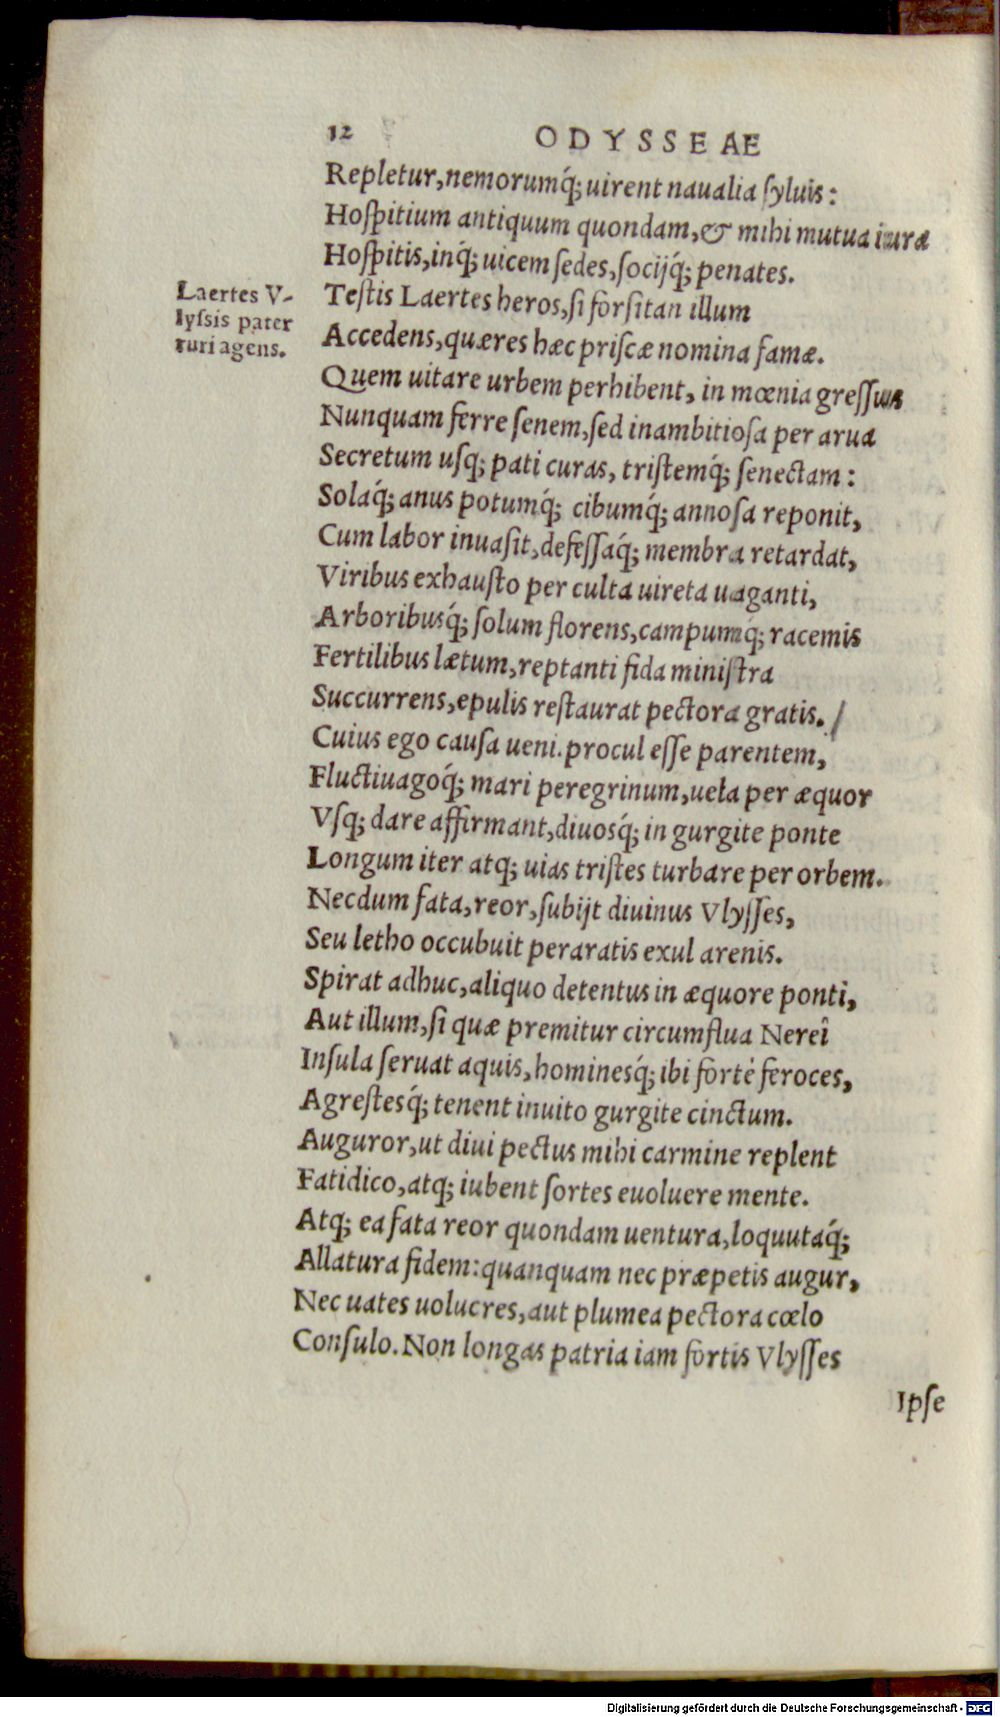 12
ODYSSEAE
Repletur,nemorumq́; uirent naualia ſyluis:
Hoſpitium antiquum quondam,& mihi mutua iura
Hoſpitis,inq́; uicem ſedes,ſocijq́; penates.
Teſtis Laertes heros,ſi forſitan illum
Accedens,quæres hæc priſcæ nomina famæ.
Quem uitare urbem perhibent, in mœnia greſſus
Nunquam ferre ſenem,ſed inambitioſa per arua
Secretum uſq; pati curas, triſtemq́; ſenectam:
Solaq́; anus potumq́; cibumq́; annoſa reponit,
Cum labor inuaſit,defeſſaq́; membra retardat,
Viribus exhauſto per culta uireta uaganti,
Arboribusq́; ſolum florens,campumq́; racemis
Fertilibus lætum,reptanti fida miniſtra
Succurrens,epulis reſtaurat pectora gratis.
Cuius ego cauſa ueni. procul eſſe parentem,
Fluctiuagoq́; mari peregrinum,uela per æquor
Vſq; dare affirmant,diuosq́; in gurgite ponte
Longum iter atq; uias triſtes turbare per orbem.
Necdum fata,reor,ſubijt diuinus Vlyſſes,
Seu letho occubuit peraratis exul arenis.
Spirat adhuc,aliquo detentus in æquore ponti,
Aut illum,ſi quæ premitur circumflua Nereî
Inſula ſeruat aquis,hominesq́; ibi fortè feroces,
Agreſtesq́; tenent inuito gurgite cinctum.
Auguror,ut diui pectus mihi carmine replent
Fatidico,atq; iubent ſortes euoluere mente.
Atq; ea fata reor quondam uentura,loquutaq́;
Allatura fidem:quanquam nec præpetis augur,
Nec uates uolucres,aut plumea pectora cœlo
Conſulo. Non longas patria iam fortis Vlyſſes
Ipſe
Laertes V-
lyſsis pater
ruri agens.
Digitalisierung gefördert durch die Deutsche Forschungsgemeinschaft - DFG